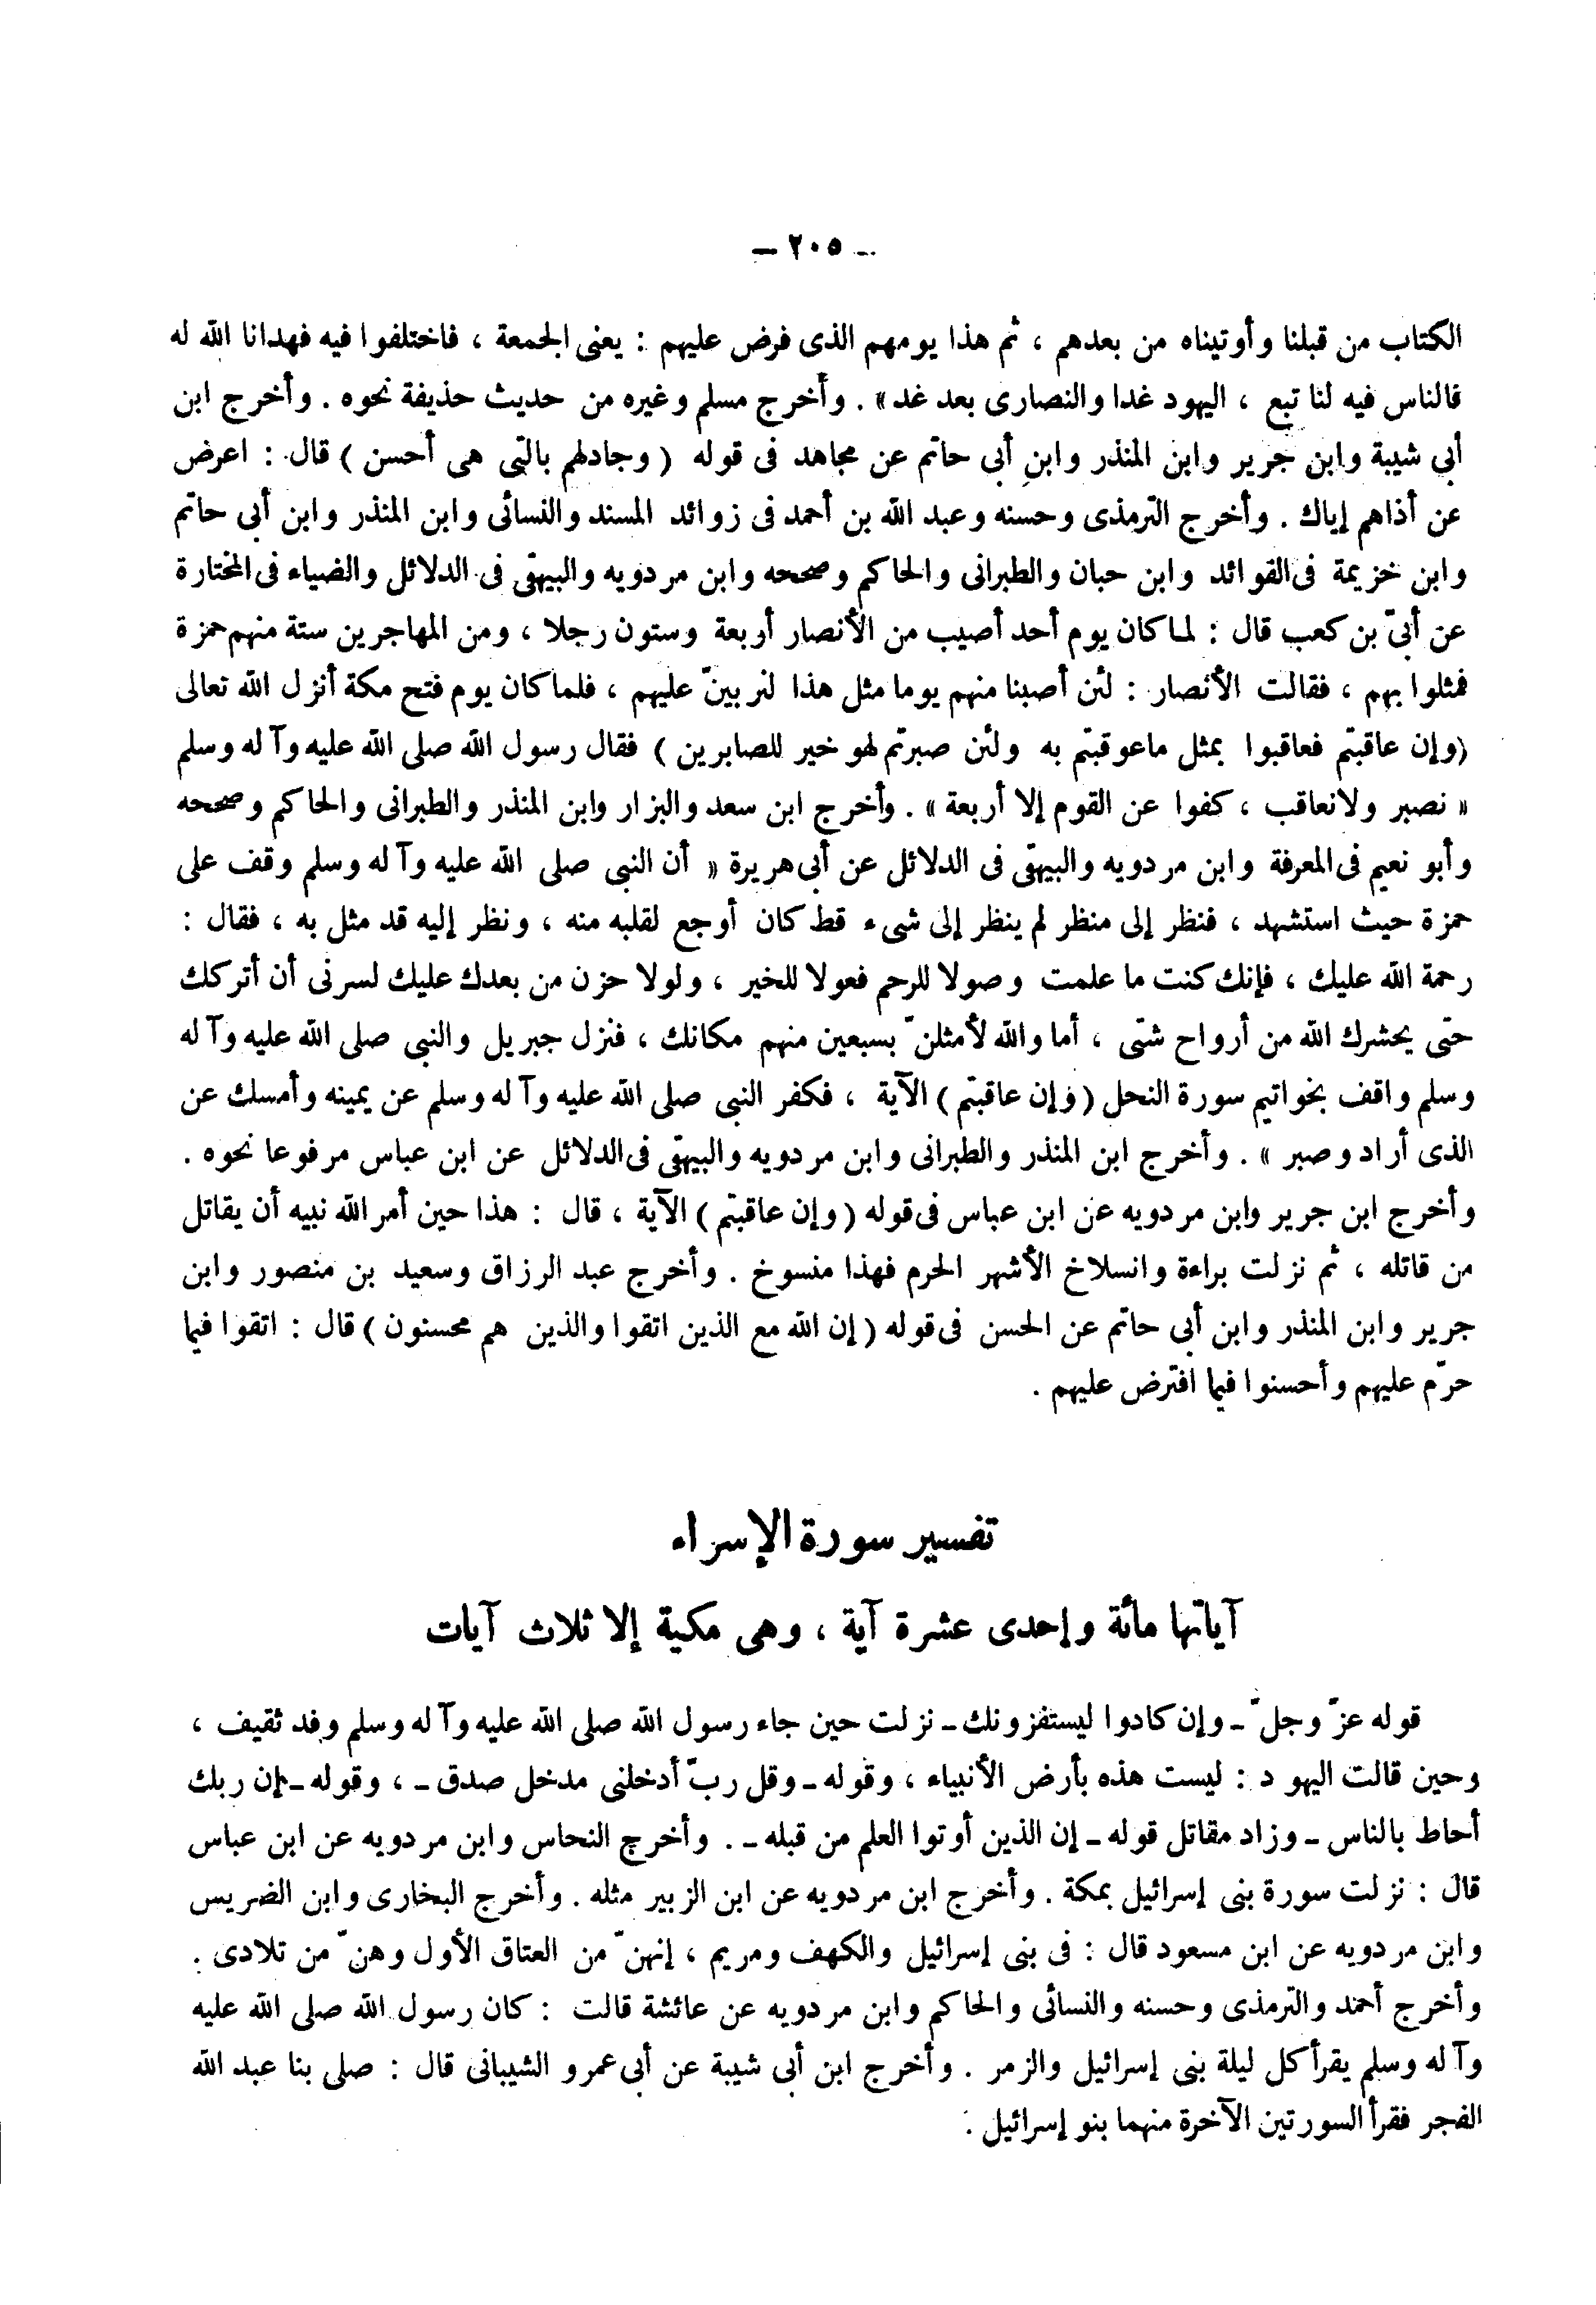 – ٢٠٥ –
الكتاب من قبلنا وأوتيناه من بعدهم ، ثم هذا يومهم الذى فرض عليهم : يعنى الجمعة ، فاختلفوا فيه فهدانا الله له
فالناس فيه لنا تبع ، اليهود غدا والنصارى بعد غد » . وأخرج مسلم وغيره من حديث حذيفة نحوه . وأخرج ابن
أبى شيبة وابن جرير وابن المنذر وابن أبى حاتم عن مجاهد فى قوله ( وجادلهم بالتى هى أحسن ) قال : اعرض
عن أذاهم إياك . وأخرج الترمذى وحسنه وعبد الله بن أحمد فى زوائد المسند والنسائى وابن المنذر وابن أبى حاتم
وابن خزيمة فى الفوائد وابن حبان والطبرانى والحاكم وصححه وابن مردويه والبيهقى فى الدلائل والضياء فى المختارة
عن أبىّ بن كعب قال : لما كان يوم أحد أصيب من الأنصار أربعة وستون رجلا ، ومن المهاجرين ستة منهم حمزة
فمثلوا بهم ، فقالت الأنصار : لئن أصبنا منهم يوما مثل هذا لنربينّ عليهم ، فلما كان يوم فتح مكة أنزل الله تعالى
(وإن عاقبتم فعاقبوا بمثل ماعوقبتم به ولئن صبرتم لهو خير للصابرين ) فقال رسول الله صلى الله عليه وآله وسلم
« نصبر ولانعاقب ، كفوا عن القوم إلا أربعة » . وأخرج ابن سعد والبزار وابن المنذر والطبرانى والحاكم وصححه
وأبو نعيم فى المعرفة وابن مردويه والبيهقى فى الدلائل عن أبى هريرة « أن النبى صلى الله عليه وآله وسلم وقف على
حمزة حيث استشهد ، فنظر إلى منظر لم ينظر إلى شىء قط كان أوجع لقلبه منه ، ونظر إليه قد مثل به ، فقال :
رحمة الله عليك ، فإنك كنت ما علمت وصولا للرحم فعولا للخير ، ولولا حزن من بعدك عليك لسرنى أن أتركك
حتى يحشرك الله من أرواح شتى ، أما والله لأمثلنّ بسبعين منهم مكانك ، فنزل جبريل والنبى صلى الله عليه وآله
وسلم واقف بخواتيم سورة النحل ( وإن عاقبتم ) الآية ، فكفر النبى صلى الله عليه وآله وسلم عن يمينه وأمسك عن
الذى أراد وصبر » . وأخرج ابن المنذر والطبرانى وابن مردويه والبيهقى فى الدلائل عن ابن عباس مرفوعا نحوه .
وأخرج ابن جرير وابن مردويه عن ابن عباس فى قوله ( وإن عاقبتم ) الآية ، قال : هذا حين أمر الله نبيه أن يقاتل
من قاتله ، ثم نزلت براءة وانسلاخ الأشهر الحرم فهذا منسوخ . وأخرج عبد الرزاق وسعيد بن منصور وابن
جرير وابن المنذر وابن أبى حاتم عن الحسن فى قوله ( إن الله مع الذين اتقوا والذين هم محسنون ) قال : اتقوا فيما
حرّم عليهم وأحسنوا فيما افترض عليهم .
تفسير سورة الإسراء
آياتها مائة وإحدى عشرة آية ، وهى مكية إلا ثلاث آيات
قوله عزّ وجلّ – وإن كادوا ليستفزونك – نزلت حين جاء رسول الله صلى الله عليه وآله وسلم وفد ثقيف ،
وحين قالت اليهود : ليست هذه بأرض الأنبياء ، وقوله – وقل ربّ أدخلنى مدخل صدق – ، وقوله – إن ربك
أحاط بالناس – وزاد مقاتل قوله – إن الذين أوتوا العلم من قبله – . وأخرج النحاس وابن مردويه عن ابن عباس
قال : نزلت سورة بنى إسرائيل بمكة . وأخرج ابن مردويه عن ابن الزبير مثله . وأخرج البخارى وابن الضريس
وابن مردويه عن ابن مسعود قال : فى بنى إسرائيل والكهف ومريم ، إنهنّ من العتاق الأول وهنّ من تلادى .
وأخرج أحمد والترمذى وحسنه والنسائى والحاكم وابن مردويه عن عائشة قالت : كان رسول الله صلى الله عليه
وآله وسلم يقرأ كل ليلة بنى إسرائيل والزمر . وأخرج ابن أبى شيبة عن أبى عمرو الشيبانى قال : صلى بنا عبد الله
الفجر فقرأ السورتين الآخرة منهما بنو إسرائيل .